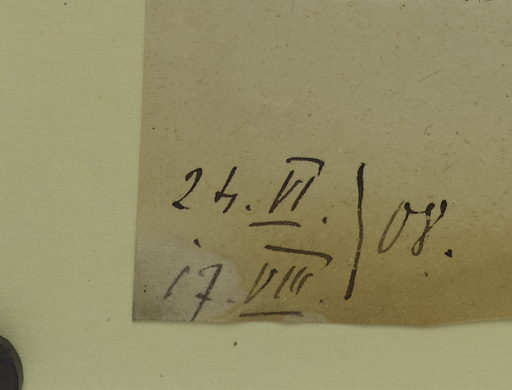 24. VI. } 08.
17. VIII.